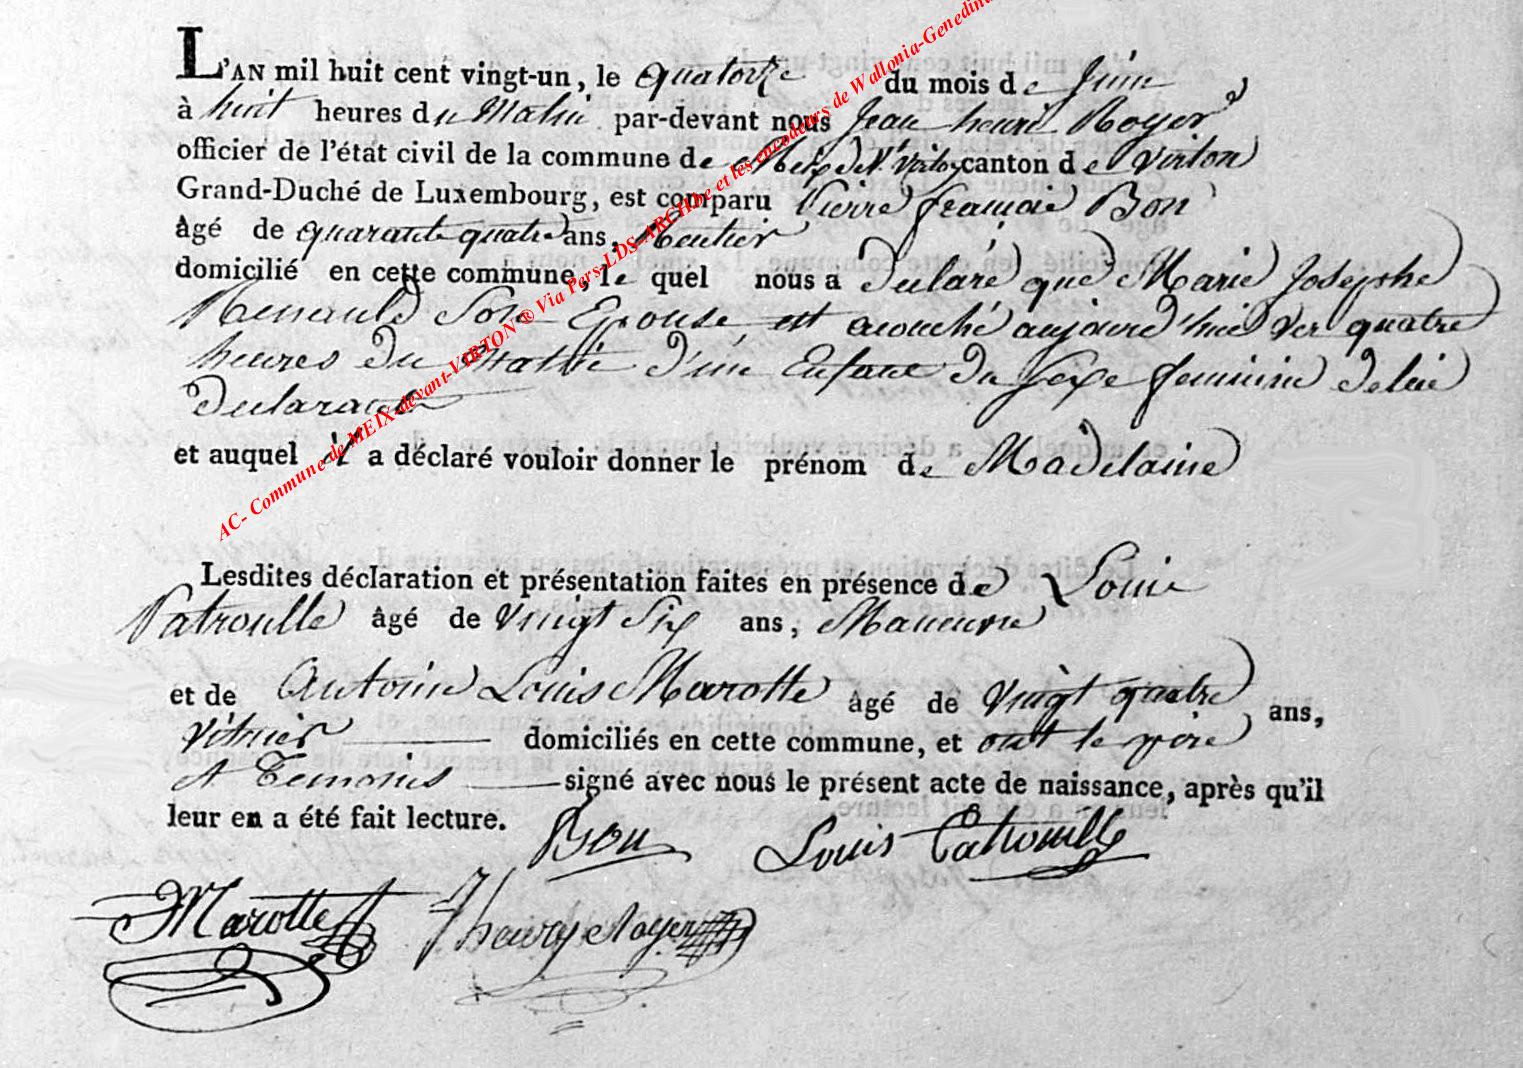 L'AN mil huit cent vingt-un, le quatorze du mois de Juin
à huit heures du Matin par-devant nous Jean henri Royer
officier de l'état civil de la commune de Meix dev.t Virton canton de Virton
Grand-Duché de Luxembourg, est comparu Pierre françois Bon
âgé de quarante quatre ans, Rentier
domicilié en cette commune, le quel nous a Déclaré que Marie Josephe
Renauld Son Epouse est accouché aujourd'hui ver quatre
heures du Matin d'un Enfant du Sexe feminin de lui
Déclarant
et auquel il a déclaré vouloir donner le prénom de Madelaine
Lesdites déclaration et présentation faites en présence de Louis
Patroulle âgé de vingt Six ans, Maneuvre
et de Antoine Louis Marotte âgé de vingt quatre ans,
Vitrier domiciliés en cette commune, et ont le père
et Temoins signé avec nous le présent acte de naissance, après qu'il
leur en a été fait lecture.
Bon Louis Patroulle
Marotte Jhenry Royer
AC- Commune de MEIX-devant-VIRTON ® Via Pers-LDS-ARCHbe et les encodeurs de Wallonia-Genedina